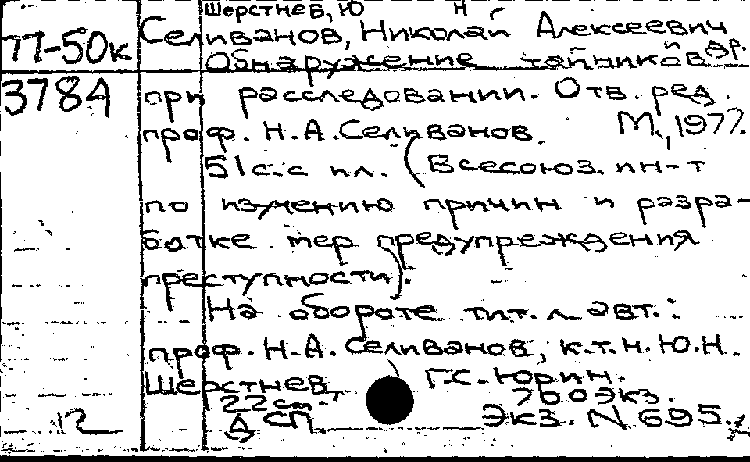 Шерстнев, Ю Н
77-50к Селиванов, Николай Алексеевич
Обнаружение тайников др.
3784 при расследовании. Отв. ред.
проф. Н.А.Селиванов. М., 1977.
51с.с ил. (Всесоюз. ин-т
по изучению причин и разра-
ботке мер предупреждения
преступности).
На обороте тит. л. авт.:
проф. Н.А. Селиванов, к.т.н. Ю.Н.
Шерстнев, Г.С. Юрин.
22 см. 760 экз.
12 Д СП. Экз. N 695.